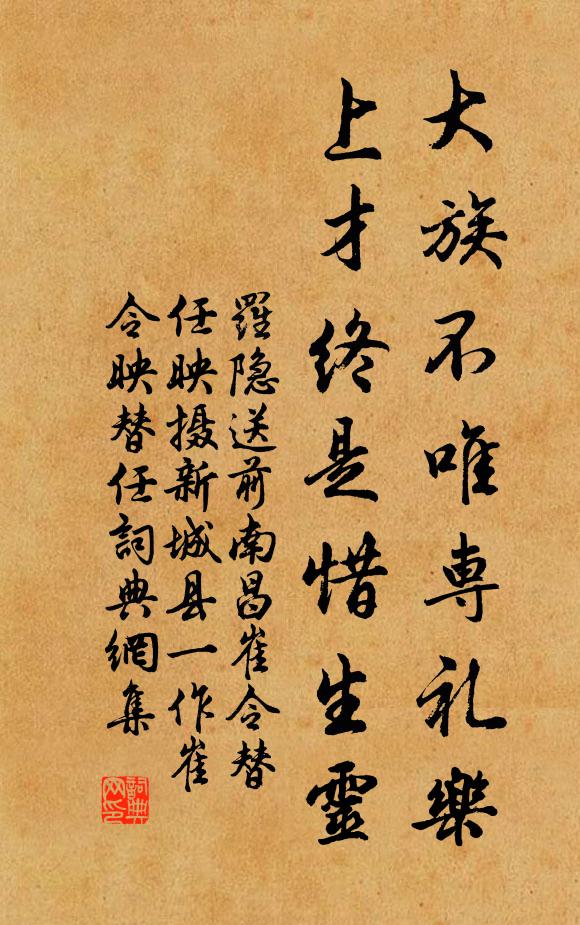 大族不唯専礼樂
上才终是惜生靈
羅隐送前南昌崔令替
任映摄新城县一作崔
令映替任詞典網集
詞典网印